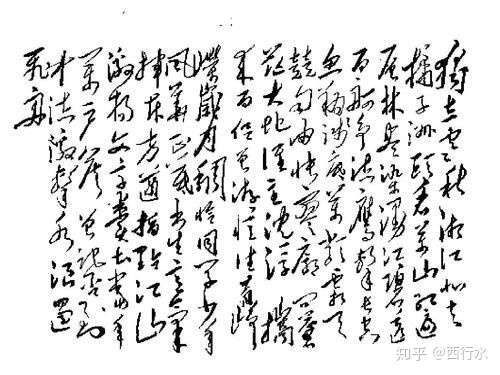 独立寒秋湘江北去
橘子洲头看万山红遍
层林尽染漫江碧透
百舸争流鹰击长空
鱼翔浅底万类霜天
竞自由怅寥廓问苍
茫大地谁主沉浮携
来百侣曾游忆往昔峥
嵘岁月稠恰同学少年
风华正茂书生意气
挥斥方遒指点江山
激扬文字粪土当年
万户侯曾记否到
中流击水浪遏
飞舟
知乎 @西行水